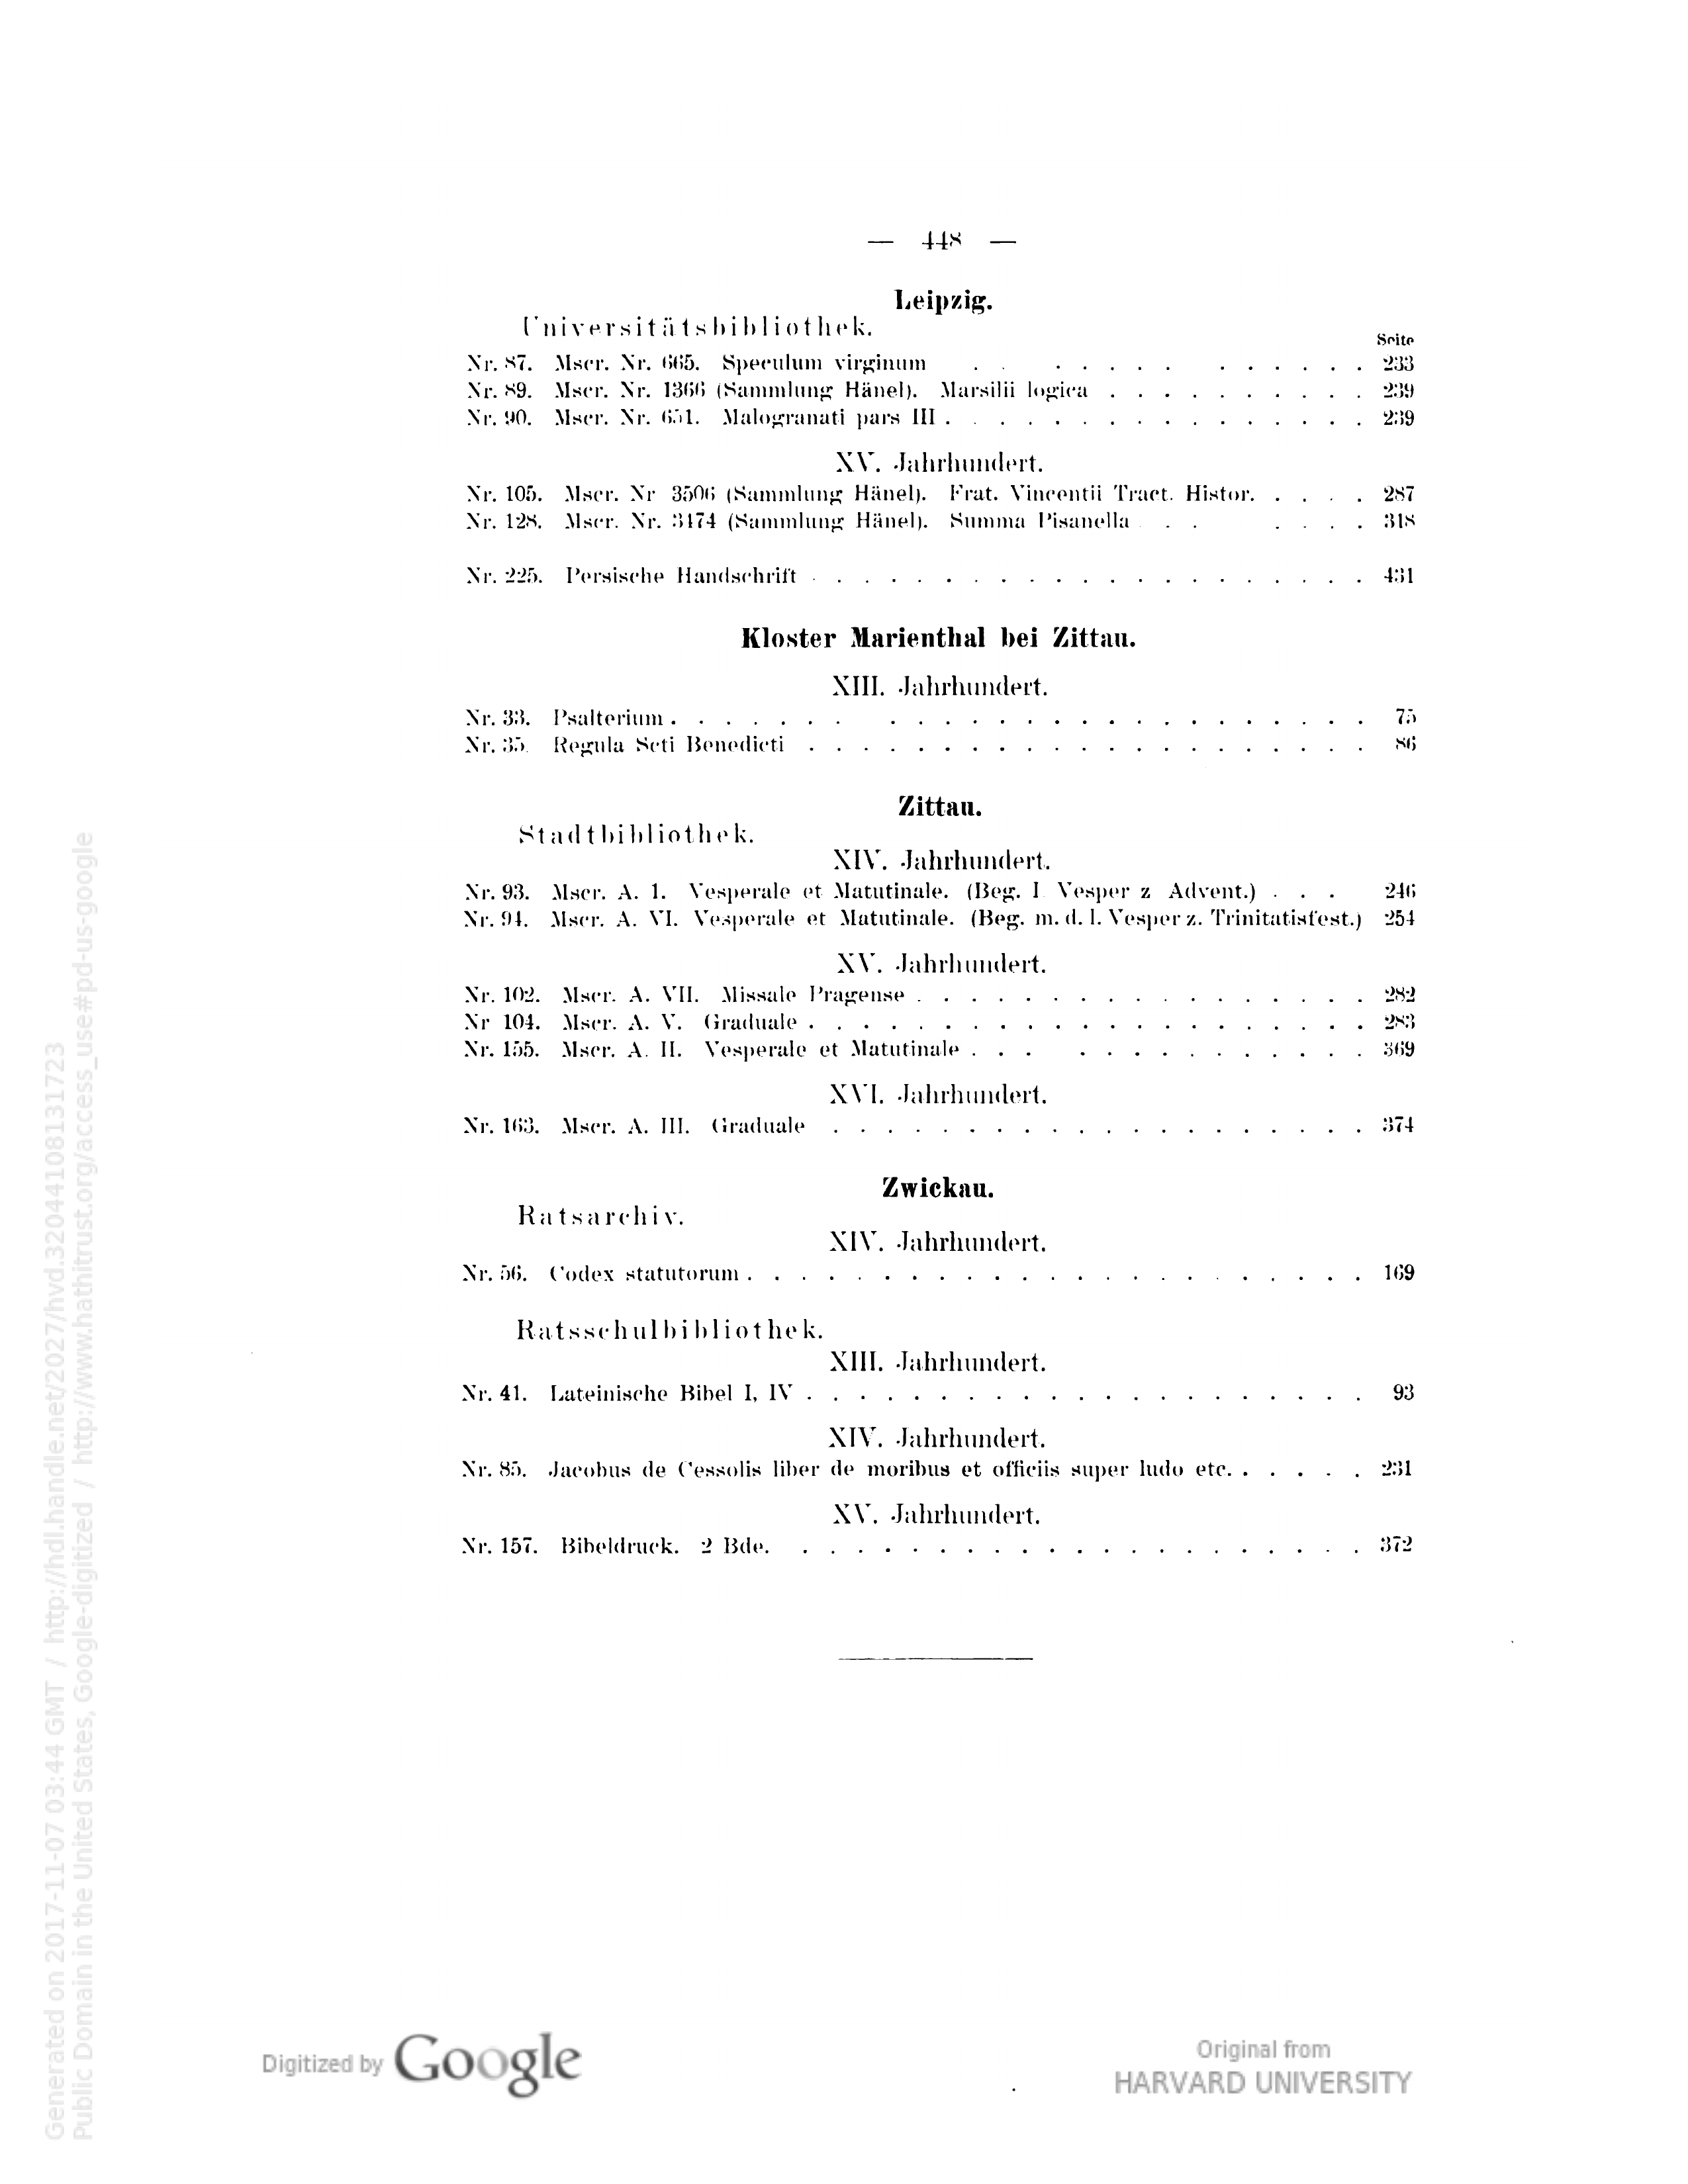 — 448 —
Leipzig.
Universitätsbibliothek.
Seite
Nr. 87. Mscr. Nr. 665. Speculum virginum . . . . . . . . . . . . . 233
Nr. 89. Mscr. Nr. 1366 (Sammlung Hänel). Marsilii logica . . . . . . . . . . 239
Nr. 90. Mscr. Nr. 651. Malogranati pars III . . . . . . . . . . . . . . . . 239
XV. Jahrhundert.
Nr. 105. Mscr. Nr 3506 (Sammlung Hänel). Frat. Vincentii Tract. Histor. . . . . 287
Nr. 128. Mscr. Nr. 3474 (Sammlung Hänel). Summa Pisanella . . . . . . 318
Nr. 225. Persische Handschrift . . . . . . . . . . . . . . . . . . . . . 431
Kloster Marienthal bei Zittau.
XIII. Jahrhundert.
Nr. 33. Psalterium . . . . . . . . . . . . . . . . . . . . . . . . . 75
Nr. 35. Regula Scti Benedicti . . . . . . . . . . . . . . . . . . . . . 86
Zittau.
Stadtbibliothek.
XIV. Jahrhundert.
Nr. 93. Mscr. A. 1. Vesperale et Matutinale. (Beg. I Vesper z Advent.) . . . 246
Nr. 94. Mscr. A. VI. Vesperale et Matutinale. (Beg. m. d. l. Vesper z. Trinitatisfest.) 254
XV. Jahrhundert.
Nr. 102. Mscr. A. VII. Missale Pragense . . . . . . . . . . . . . . . . . 282
Nr 104. Mscr. A. V. Graduale . . . . . . . . . . . . . . . . . . . . . 283
Nr. 155. Mscr. A. II. Vesperale et Matutinale . . . . . . . . . . . . . . 369
XVI. Jahrhundert.
Nr. 163. Mscr. A. III. Graduale . . . . . . . . . . . . . . . . . . . . 374
Zwickau.
Ratsarchiv.
XIV. Jahrhundert.
Nr. 56. Codex statutorum . . . . . . . . . . . . . . . . . . . . . . . 169
Ratsschulbibliothek.
XIII. Jahrhundert.
Nr. 41. Lateinische Bibel I, IV . . . . . . . . . . . . . . . . . . . . . 93
XIV. Jahrhundert.
Nr. 85. Jacobus de Cessolis liber de moribus et officiis super ludo etc. . . . . . 231
XV. Jahrhundert.
Nr. 157. Bibeldruck. 2 Bde. . . . . . . . . . . . . . . . . . . . . . 372
Generated on 2017-11-07 03:44 GMT / http://hdl.handle.net/2027/hvd.32044108131723
Public Domain in the United States, Google-digitized / http://www.hathitrust.org/access_use#pd-us-google
Digitized by Google
Original from
HARVARD UNIVERSITY